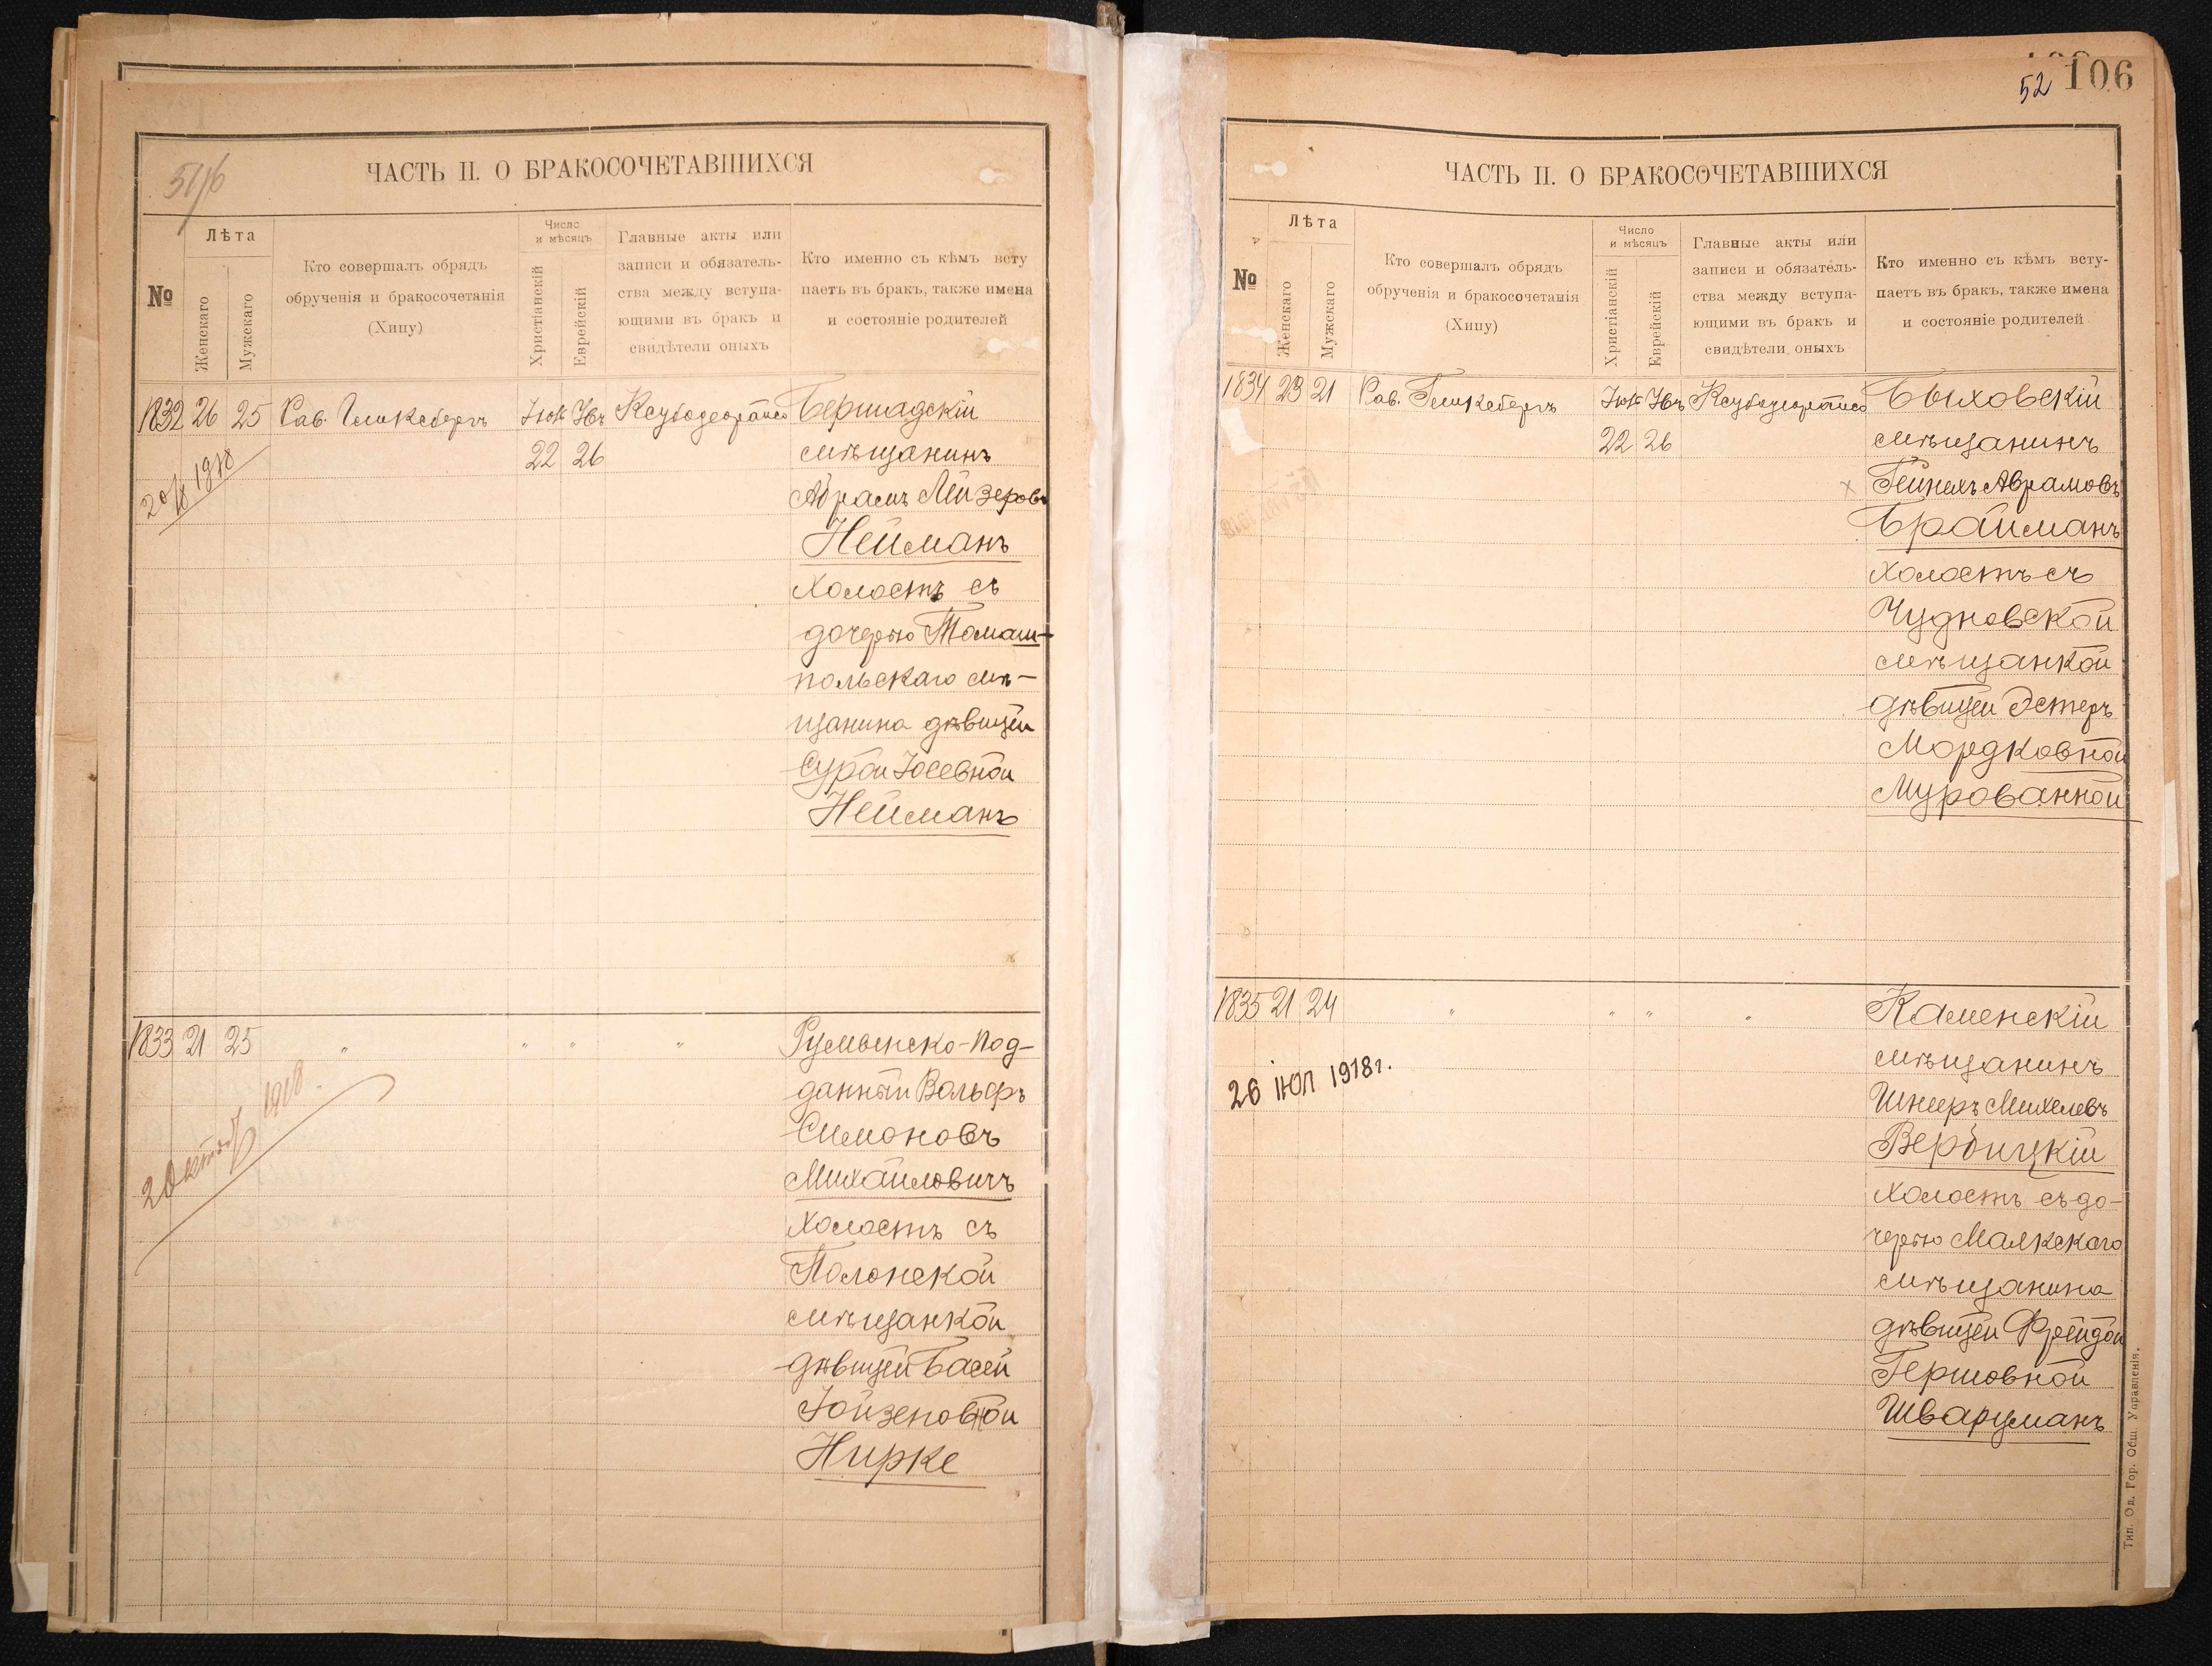 51/б
ЧАСТЬ II. О БРАКОСОЧЕТАВШИХСЯ
№
Лѣта
Женскаго
Мужскаго
Кто совершалъ обрядъ
обрученія и бракосочетанія
(Хипу)
Число
и мѣсяцъ
Христіанскій
Еврейскій
Главные акты или
записи и обязатель-
ства между вступа-
ющими въ бракъ и
свидѣтели оныхъ
Кто именно съ кѣмъ всту
паетъ въ бракъ, также имена
и состояніе родителей
1832 26 25 Рав. Гликсбергъ Бершадскій
22 26 мѣщанинъ
Абрамъ Лейзеровъ
Нейманъ
холостъ съ
дочерью Томаш-
польскаго мѣ-
щанина дѣвицей
Сурой Іосевной
Нейманъ
1833 21 25 " " " " Румынско-под-
данный Вольфъ
Симоновъ
Михайловичъ
холостъ съ
Полонской
мѣщанкой
дѣвицей Басей
Нирке
52 106
ЧАСТЬ II. О БРАКОСОЧЕТАВШИХСЯ
№
Лѣта
Женскаго
Мужскаго
Кто совершалъ обрядъ
обрученія и бракосочетанія
(Хипу)
Число
и мѣсяцъ
Христіанскій
Еврейскій
Главные акты или
записи и обязатель-
ства между вступа-
ющими въ бракъ и
свидѣтели оныхъ
Кто именно съ кѣмъ всту-
паетъ въ бракъ, также имена
и состояніе родителей
1834 23 21 Рав. Гликсбергъ Быховскій
22 26 мѣщанинъ
Гейнехъ Аврамовъ
Брайманъ
холостъ съ
Чудновской
мѣщанкой
дѣвицей Эстеръ
Мордковной
Мурованной
1835 21 24 " " " " Каменскій
26 ІЮЛ 1918г.
мѣщанинъ
Шнееръ Михелевъ
Вербицкій
холостъ съ до-
черью Малкскаго
мѣщанина
дѣвицей Фрейдой
Гершовной
Шварцманъ
Тип. Од. Гор. Общ. Управленія.